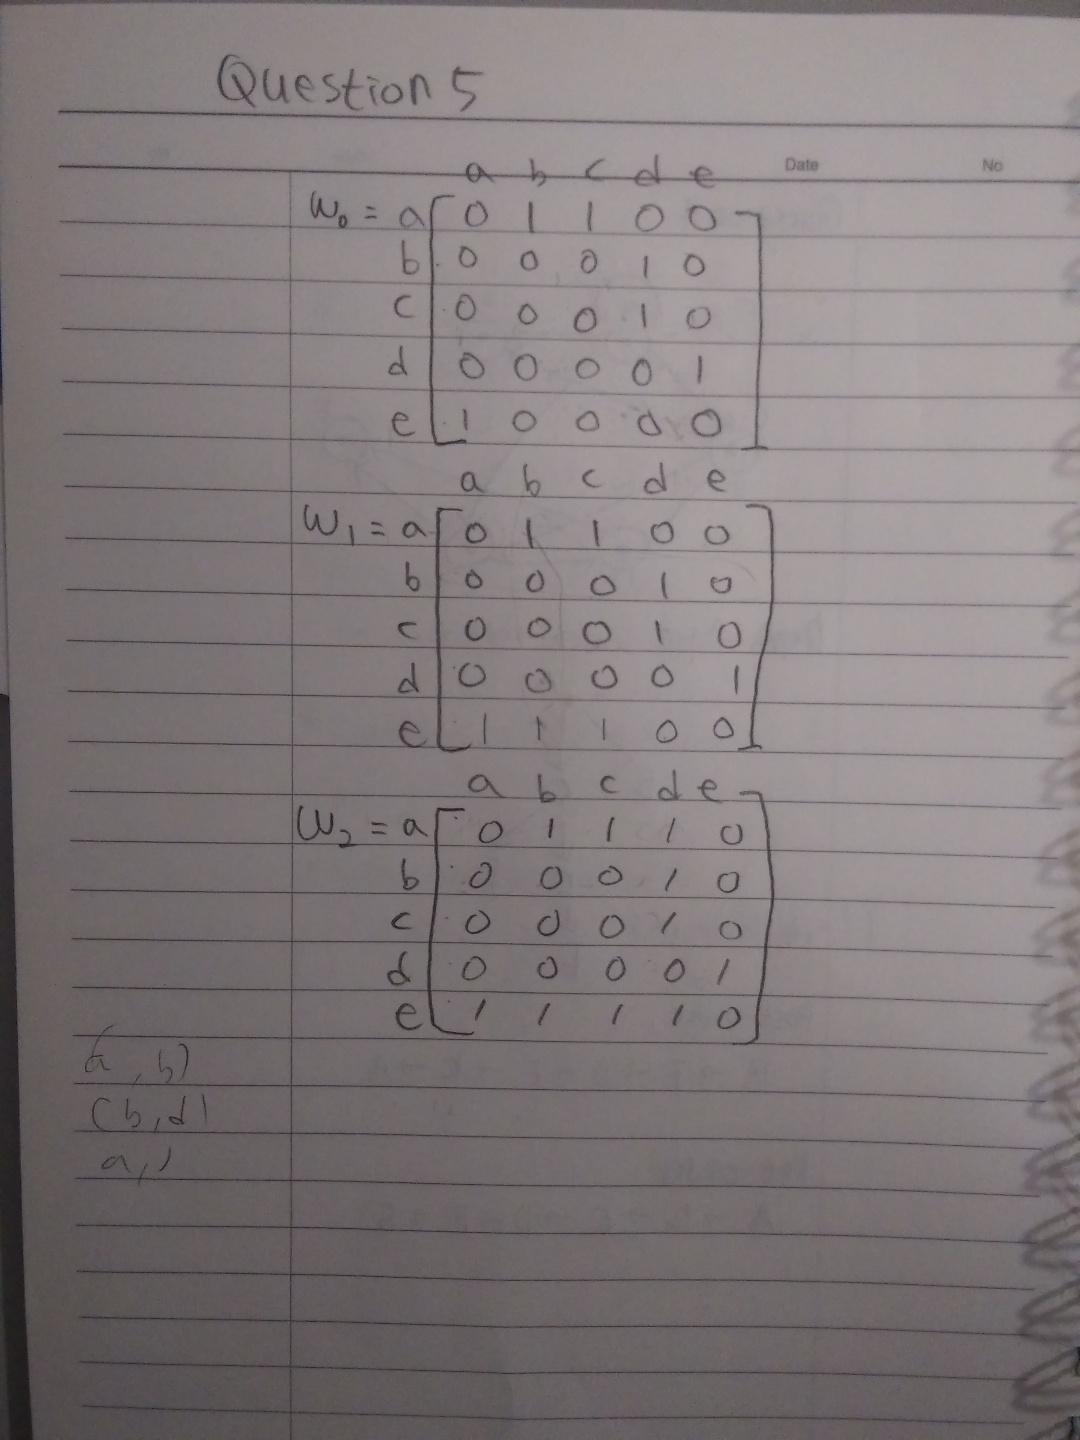 Question 5
Date No
a b c d e
W₀ = a 0 1 1 0 0
b 0 0 0 1 0
c 0 0 0 1 0
d 0 0 0 0 1
e 1 0 0 0 0
a b c d e
W₁ = a 0 1 1 0 0
b 0 0 0 1 0
c 0 0 0 1 0
d 0 0 0 0 1
e 1 1 1 0 0
a b c d e
W₂ = a 0 1 1 1 0
b 0 0 0 1 0
c 0 0 0 1 0
d 0 0 0 0 1
e 1 1 1 1 0
(a, b)
(b, d)
a, )